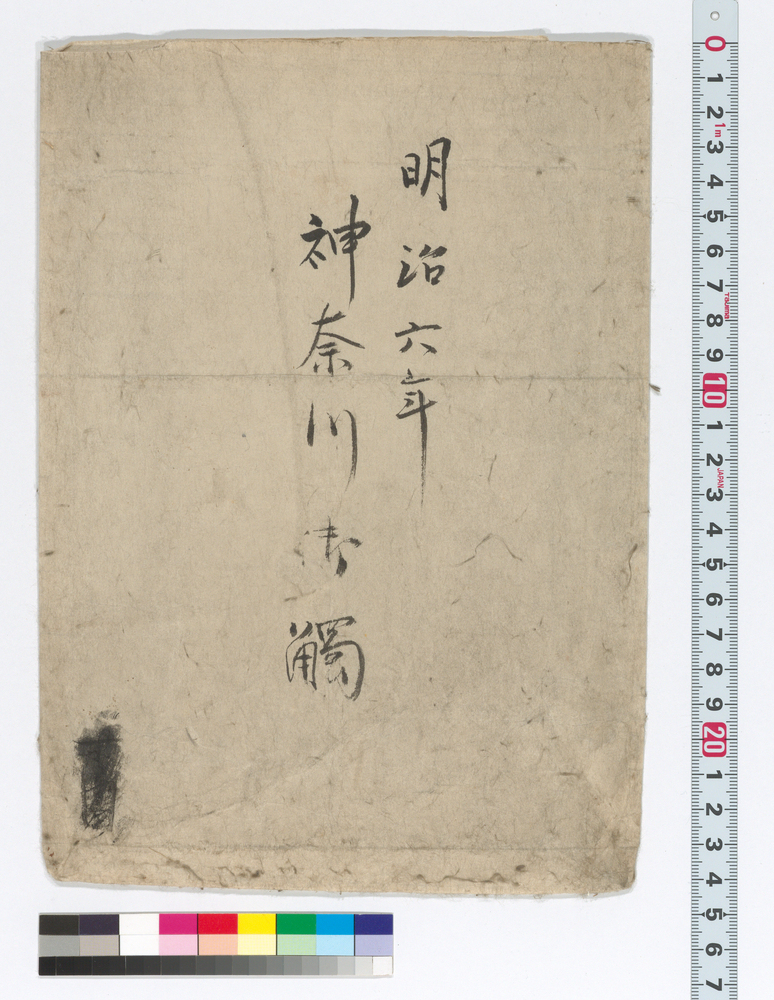 明治六年
神奈川御觸
0
1
2
1m
3
4
5
6
7
TSUBAKI
8
9
10
1
2
JAPAN
3
4
5
6
7
8
9
20
1
2
3
4
5
6
7